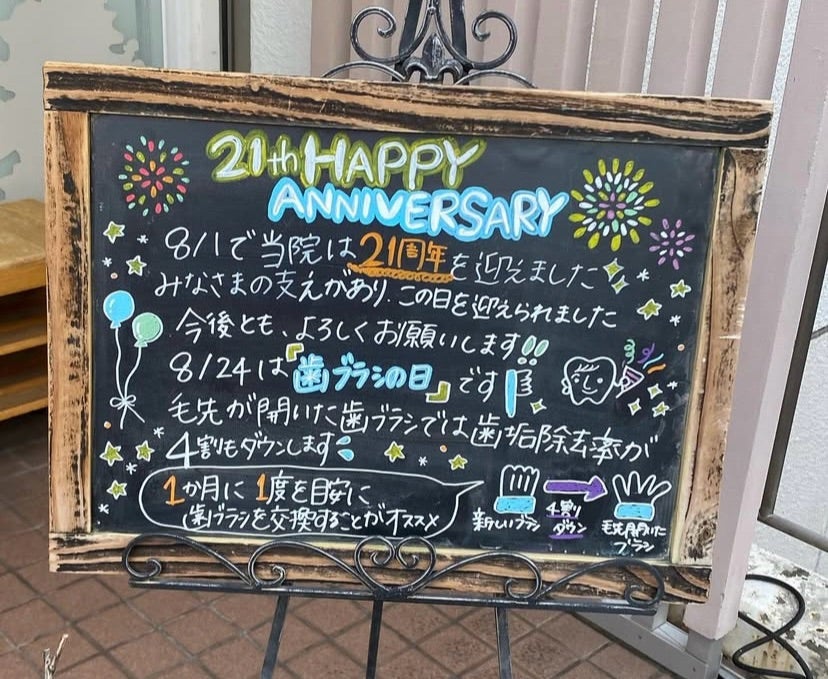 21th HAPPY
ANNIVERSARY
8/1で当院は21周年を迎えました
みなさまの支えがあり、この日を迎えられました
今後とも、よろしくお願いします!!
8/24は『歯ブラシの日』です
毛先が開いた歯ブラシでは歯垢除去率が
4割もダウンします
1か月に1度を目安に
歯ブラシを交換することがオススメ
新しいブラシ
4割
ダウン
毛先開いた
ブラシ